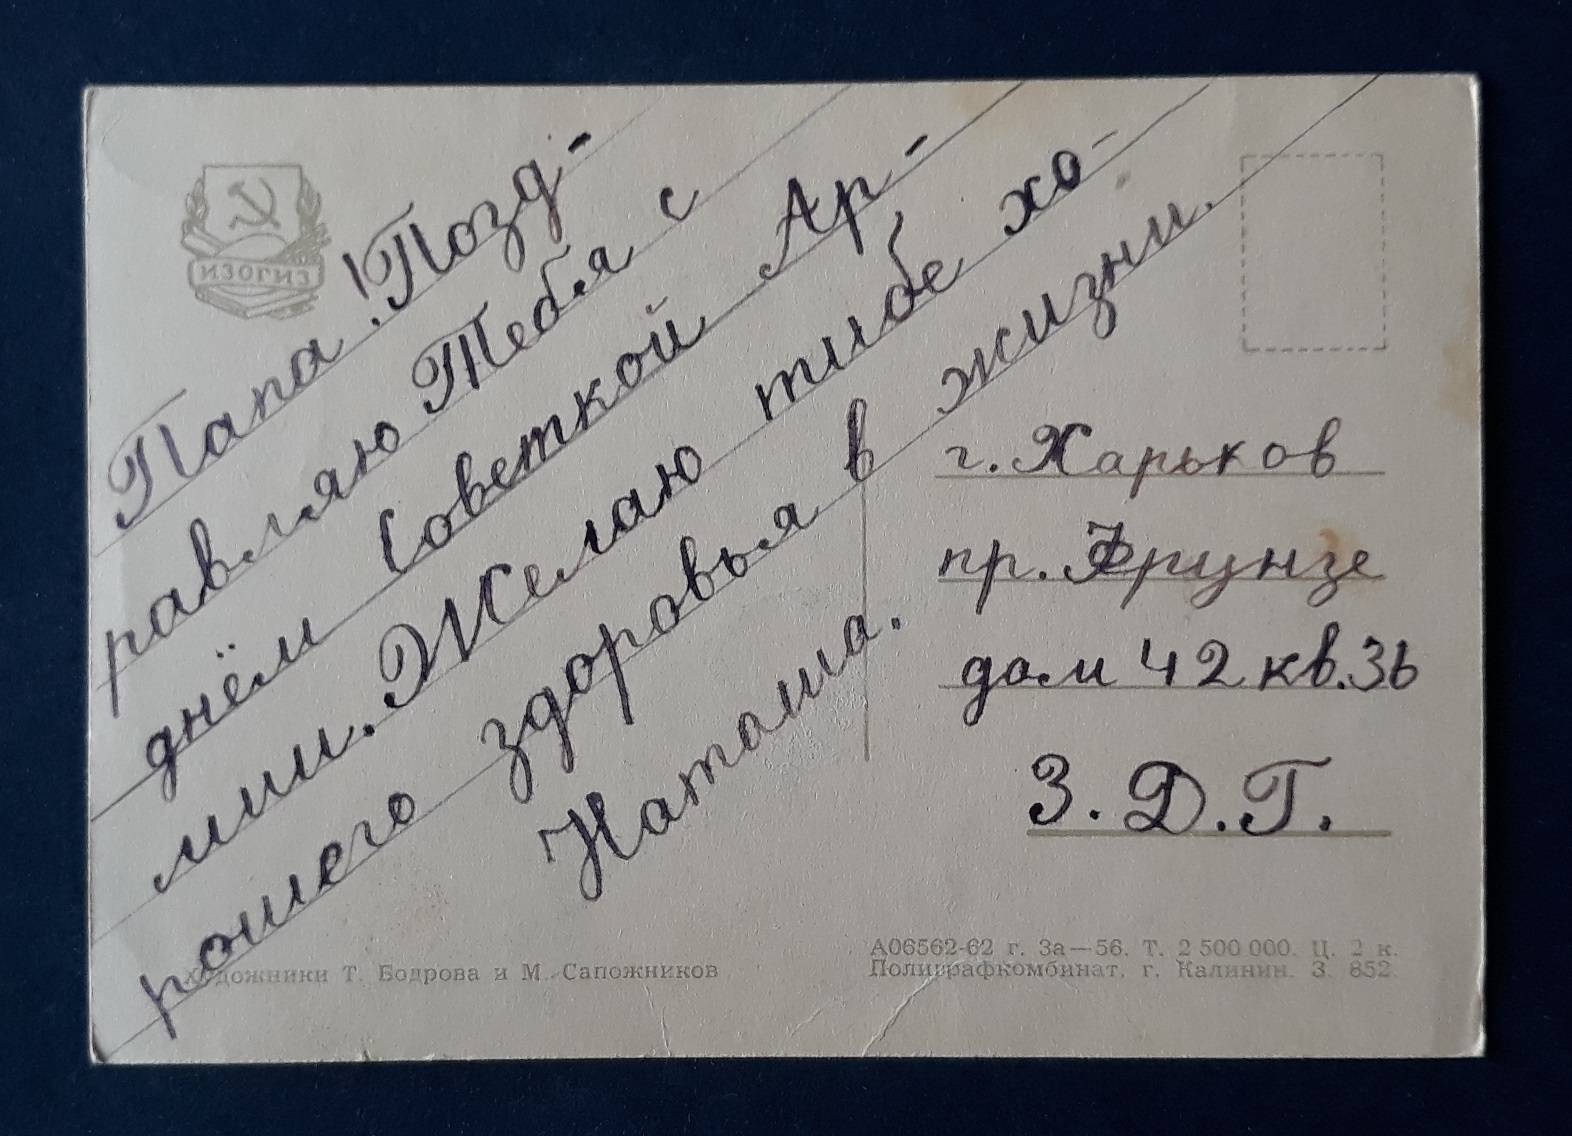 ИЗОГИЗ
Папа! Позд-
равляю Тебя с
днём Советкой Ар-
мии. Желаю тибе хо-
рошего здоровья в жизни.
Наташа.
г. Харьков
пр. Фрунзе
дом 42 кв. 36
З. Д. Г.
Художники Т. Бодрова и М. Сапожников
А06562-62 г. За—56. Т. 2 500 000. Ц. 2 к.
Полиграфкомбинат, г. Калинин. З. 852.